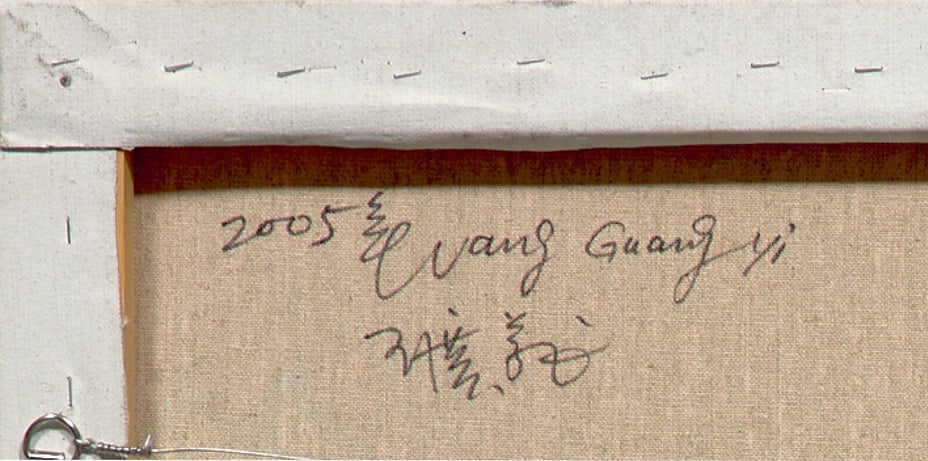 2005年 Wang Guangyi
王廣義